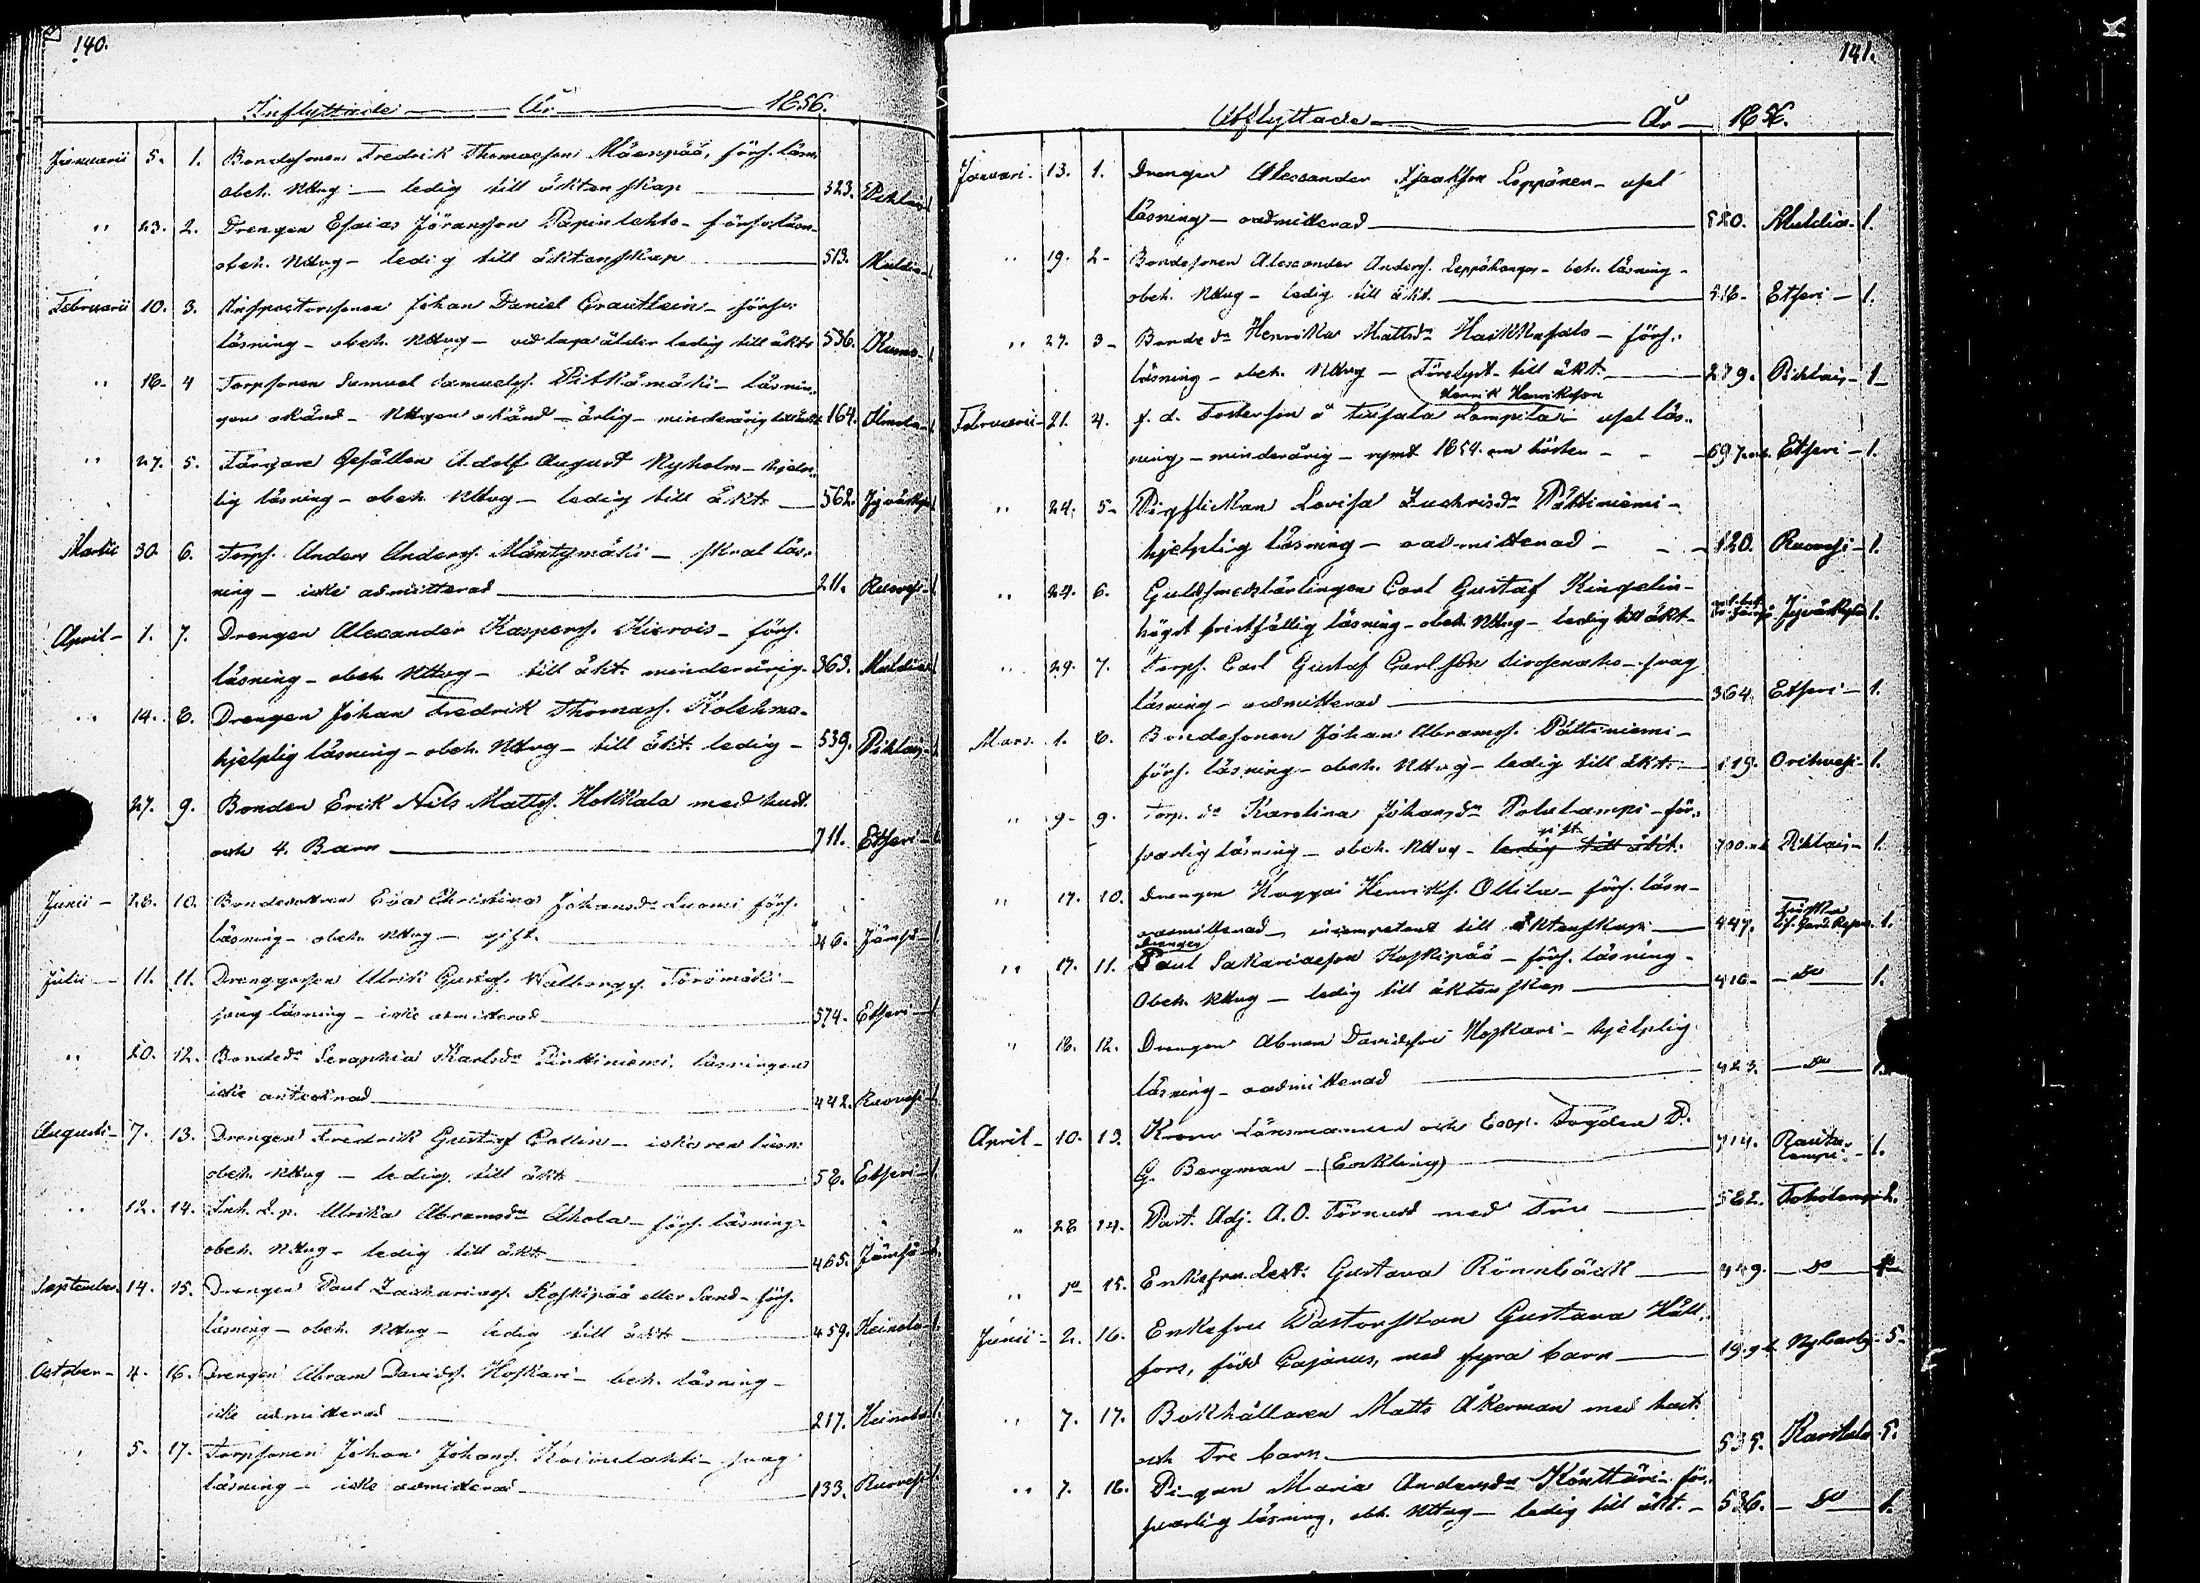 140.
Inflyttade — År — 1856.
Januarii 5. 1. Bondesonen Fredrik Thomasson Mäenpää, förs. läsn.
obeh. Nttvg — ledig till äktenskap — 323. Pihlaj. 1
" 23. 2. Drengen Esaias Jöransson Papinlehto — förs. läsn.
obeh. Nttvg — ledig till äktenskap — 513. Multia 1
Februarii 10. 3. Inspectorssonen Johan Daniel — förs.
läsning — obeh. Nttvg — ledig till äkt. 536. Kumo 1
" 18. 4 Torpsonen Samuel Samuelss. Pitkämäki — läsnin-
gen okänd — Nttvgen okänd — ärlig — minderårig 164. Ilmola 1
" 27. 5. Färgare Gesällen Adolf August Nyholm — hjelp-
lig läsning — obeh. Nttvg — ledig till äkt. — 562. Jyväskyl 1
Martii 30. 6. Torps. Anders Anderss. Mäntymäki — skral läs-
ning — icke admitterad — 211. Ruovesi 1
April — 1. 7. Drengen Alexander Kaspers. — förs.
läsning — obeh. Nttvg — till äkt. minderårig. 363. Multia 1
" 14. 8. Drengen Johan Fredrik Thomass. Kolehma-
hjelplig läsning — obeh. Nttvg — till äkt. ledig — 539. Pihlaj. 1
27. 9. Bonden Erik Nils Mattss. Hokkala med hust.
och 4. Barn — 711. Etseri — 6
Junii — 28. 10. Eva Christina Johansdr Luomi förs.
läsning — obeh. Nttvg — gift. 46. Jämsä — 1
Julii — 11. 11. Ulrik Gustaf Törömäki —
svag läsning — icke admitterad — 574. Etseri — 1
" 20. 12. Bondedr Seraphia Karlsdr läsningen
icke antecknad — 442. Ruovesi — 1
Augusti — 7. 13. Drengen Fredrik Gustaf — icke ren läsn.
obeh. Nttvg — ledig till äkt. 58. Etseri — 1
" 12. 14. Inh. Ulrika Abramsdr Ahola — förs. läsning
obeh. Nttvg — ledig till äkt. — 465. Jämsä — 1
September 14. 15. Drengen Paul Zachariass. Koskipää eller Sand — förs.
läsning — obeh. Nttvg — ledig till äkt. — 459. Heinola 1
October — 4. 16. Drengen Abram Davidss. Hoskari — beh. läsning —
icke admitterad — 217. Heinola 1
" 5. 17. Torpsonen Johan Johanss. — svag
läsning — icke admitterad — 133. Ruovesi 1
141.
Afflyttade — År — 1856.
Januari — 13. 1. Drengen Alexander Isaaksson Leppänen — usel
läsning — oadmitterad — 520. Multia — 1.
" 19. 2 — Bondesonen Alexander Anderss. Leppäkangas — beh. läsning —
obeh. Nttvg — ledig till äkt. — 516. Etseri — 1.
" 27. 3 — Bonde dr Henrika Mattsdr — förs.
läsning — obeh. Nttvg — till äkt. — 279. Pihlaj. — 1
Henrik Henriksson
Februarii — 21. 4. f. d. Fosterson å Tuisala Lampila — usel läs-
ning — minderårig — rymt 1854. om hösten — 697. Etseri — 1.
" 24. 5 — Pigflickan Lovisa Zachrisdr Pättiniemi —
hjelplig läsning — oadmitterad — 120. Ruovesi — 1.
" 24. 6. Guldsmedslärlingen Carl Gustaf Kingelin —
högst bristfällig läsning — obeh. Nttvg — ledig till äkt — Jyväskylä 1.
" 29. 7. Torps. Carl Gustaf Carlsson — svag
läsning — oadmitterad — 364. Etseri — 1.
Mars. 1. 8. Bondesonen Johan Abramss. Pättiniemi —
förs. läsning — obeh. Nttvg — ledig till äkt. — 119. Orihvesi — 1.
" 9 — 9. Torp. dr Karolina Johansdr Polulampi — för-
svarlig läsning — obeh. Nttvg — gift ledig till äkt. 700. Pihlaj. — 1.
" 17. 10. Drengen Henrikss. Ollila — förs. läsn —
oadmitterad — incompetent till äktenskap — 447. 1.
" 17. 11. Drengen Paul Sakariasson Koskipää — förs. läsning —
Obeh. Nttvg — ledig till äktenskap — 416 — Do — 1.
" 18. 12. Drengen Abram Davidsson Hoskari — hjelplig
läsning — oadmitterad — 423. — Do — 1.
April — 10. 13. Krono Länsmannen och Fogden P.
G. Bergman — (Enkling) — 714. Rauta-lampi. — 1.
" 28 14. Past. Adj. A. O. Törnudd med Fru — 582. Toholampi 2.
" Do 15. Enkefru Gustava Rönnbäck — 449. — Do —
Junii — 2. 16. Enkefru Pastorskan Gustava Häll-
fors, född Cajanus, med fyra barn — Nykarleb. 5 —
" 7. 17. Bokhållaren Matts Åkerman med hust.
och Tre barn. — 535. Karstula 5.
" 7. 18. Pigan Maria Andersdr Könttäri — för-
svarlig läsning, obh. Nttvg — ledig till äkt. — 536. — Do — 1.